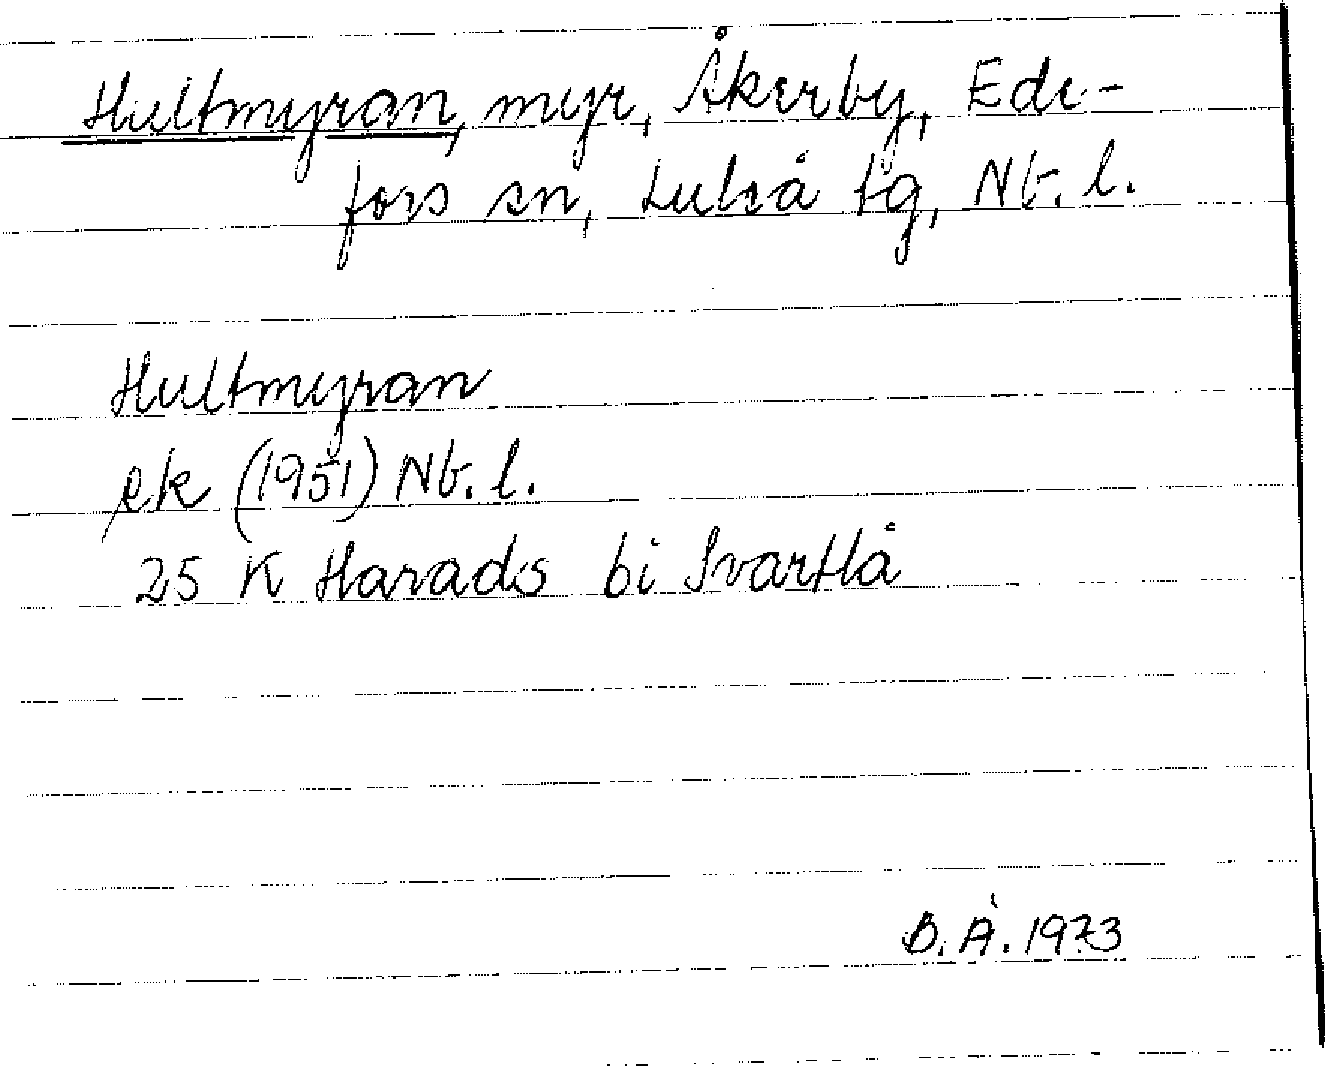 Hultmyran, myr, Åkerby, Ede-
fors sn, Luleå tg, Nb. l.
Hultmyran
ek (1951) Nb. l.
25 K Harads bi Svartlå
B. Å. 1973